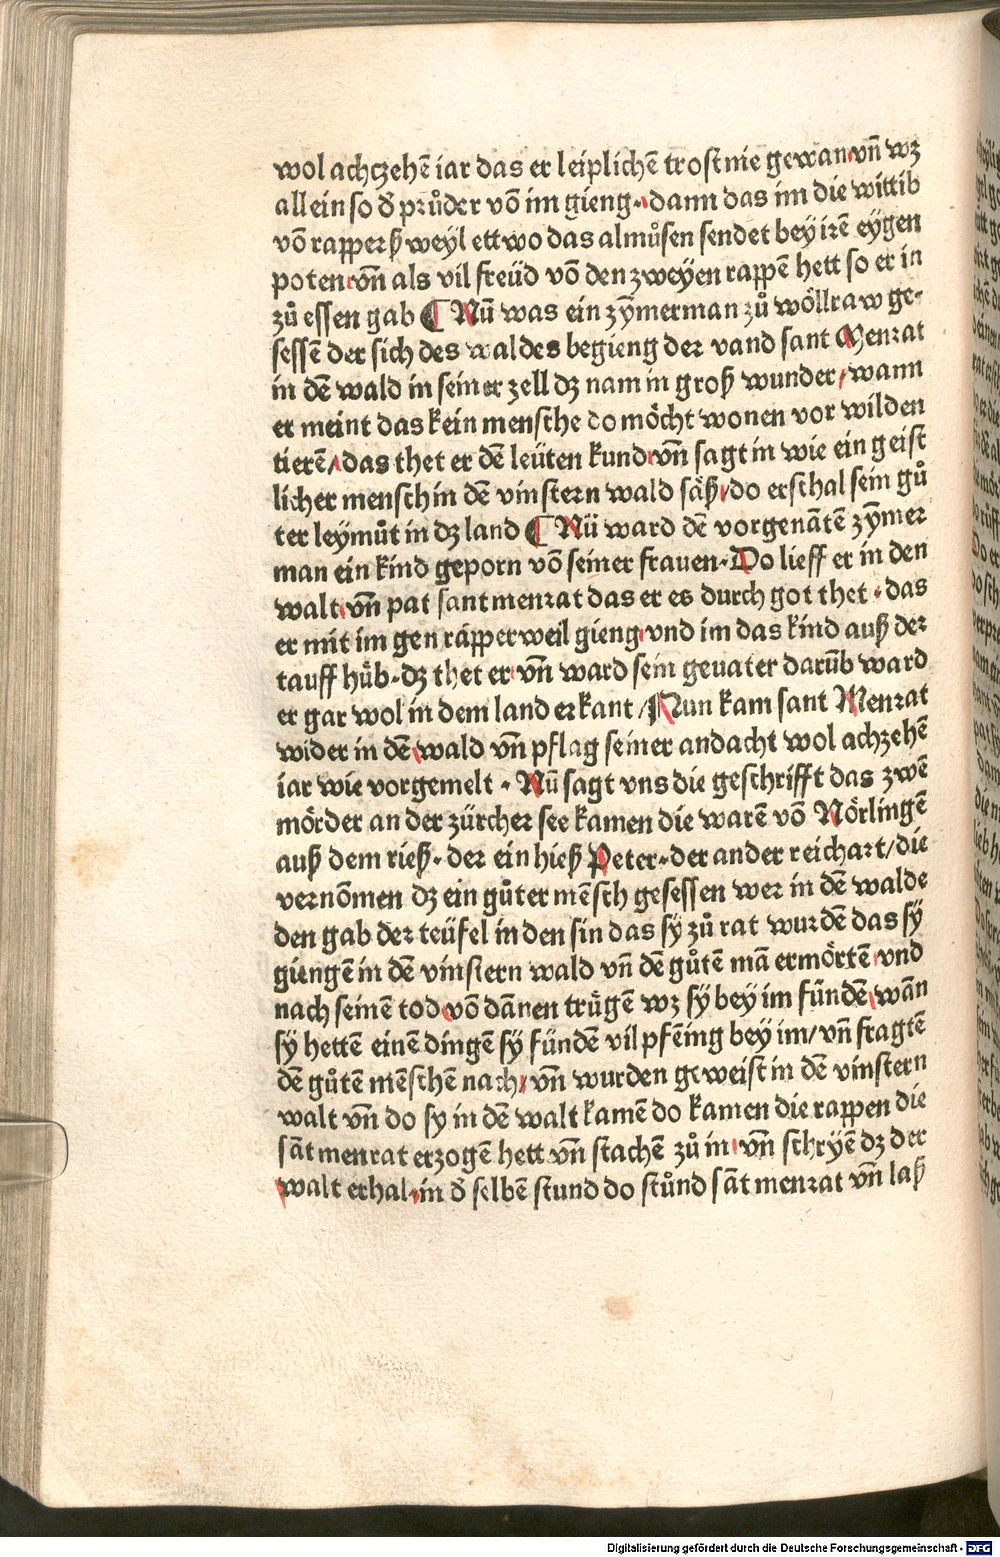 wol achczehē iar das er leiplichē trost nie gewan vn̄ wz
allein so d̕ průder vō im gieng dann das im die wittib
vō rapperß weyl ettwo das almůsen sendet bey irē eygen
poten vn̄ als vil freüd vō den zweyen rappē hett so er in
zů essen gab ¶ Nū was ein zȳmerman zů wöllraw ge-
sessē der sich des waldes begieng der vand sant Menrat
in dē wald in seiner zell dz nam in groß wunder / wann
er meint das kein mensche do möcht wonen vor wilden
tierē / das thet er dē leüten kund vn̄ sagt in wie ein geist
licher mensch in dē vinstern wald säß / do erschal sein gů
ter leymůt in dz land ¶ Nū ward dē vorgenātē zȳmer
man ein kind geporn vō seiner frauen. Do lieff er in den
walt vn̄ pat sant menrat das er es durch got thet. das
er mit im gen räpperweil gieng vnd im das kind auß der
tauff hůb. dz thet er vn̄ ward sein geuater darūb ward
er gar wol in dem land erkant / Nun kam sant Menrat
wider in dē wald vn̄ pflag seiner andacht wol achzehē
iar wie vorgemelt. Nū sagt vns die geschrifft das zwē
mörder an der zürcher see kamen die warē vō Nörlingē
auß dem rieß. der ein hieß Peter. der ander reichart / die
vernōmen dz ein gůter mēsch gesessen wer in dē walde
den gab der teüfel in den sin das sÿ zů rat wurdē das sÿ
giengē in dē vinstern wald vn̄ dē gůtē mā ermörtē vnd
nach seinē tod vō dānen trůgē wz sÿ bey im fündē wān
sÿ hettē einē dingē sÿ fündē vil pfēing bey im / vn̄ fragtē
dē gůtē mēschē nach / vn̄ wurden geweist in dē vinstern
walt vn̄ do sy in dē walt kamē do kamen die rappen die
sāt menrat erzogē hett vn̄ stachē zů in vn̄ schryē dz der
walt erhal. in d̕ selbē stund do stůnd sāt menrat vn̄ laß
Digitalisierung gefördert durch die Deutsche Forschungsgemeinschaft - DFG